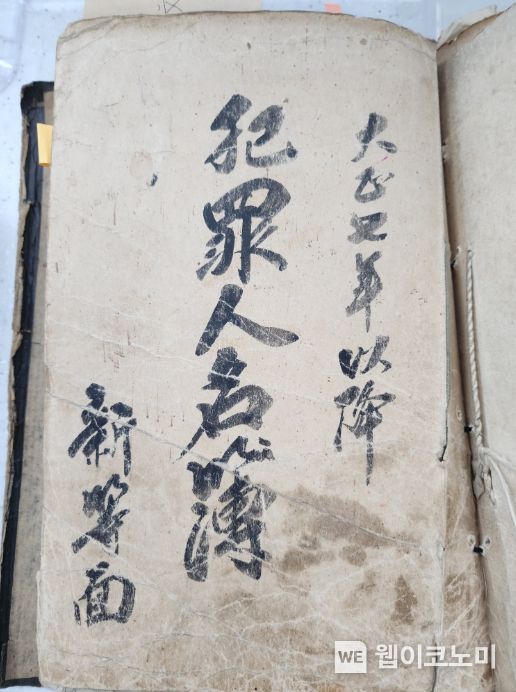 大正七年以降
犯罪人名簿
新等面
WE 웹이코노미